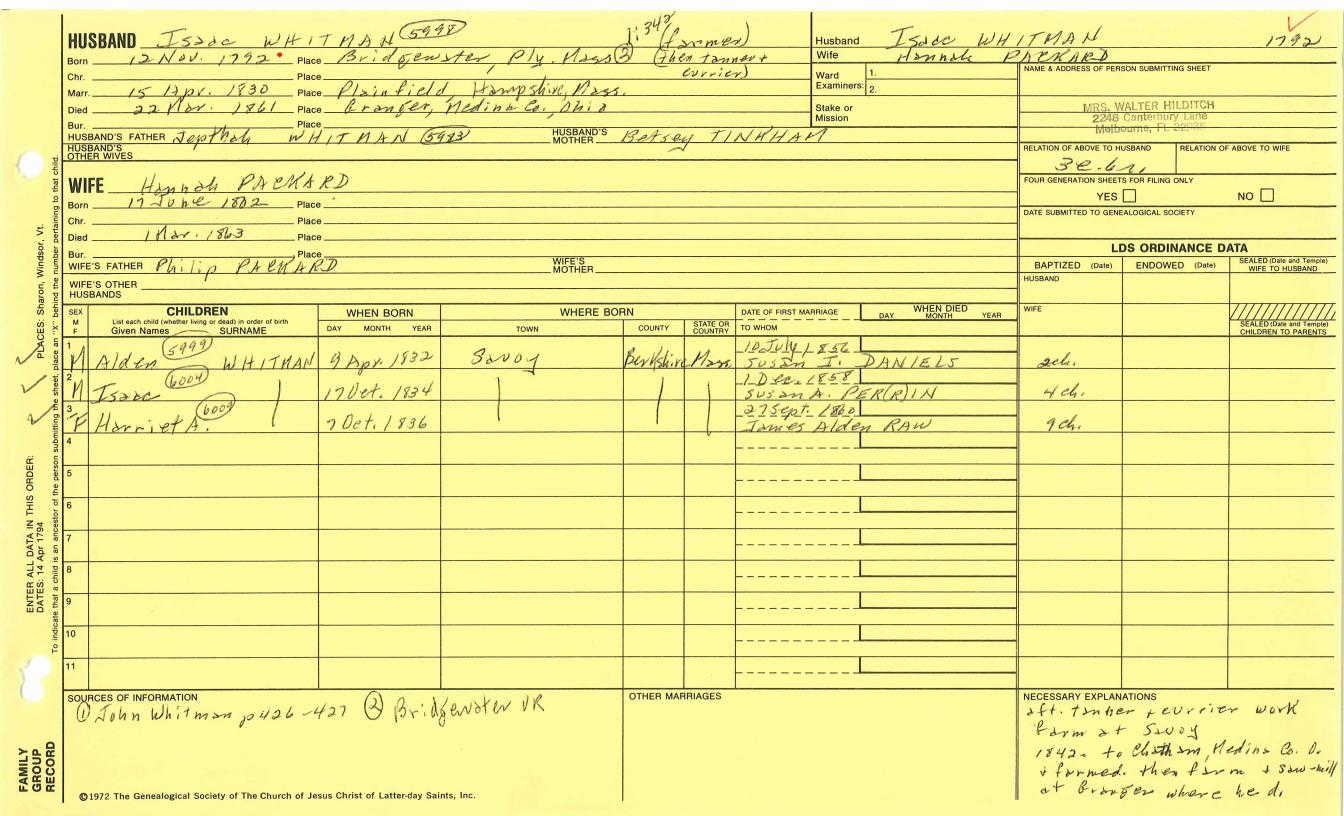 HUSBAND Isaac WHITMAN 5998 1:342 (farmer)
Born 12 Nov. 1792 Place Bridgewater, Ply. Mass 2 (then tanner +
currier)
Chr. Place
Marr. 15 Apr. 1830 Place Plainfield, Hampshire, Mass.
Died 22 Mar. 1861 Place Granger, Medina Co., Ohio
Bur. Place
HUSBAND'S FATHER Jepthah WHITMAN 5983 HUSBAND'S MOTHER Betsey TINKHAM
HUSBAND'S OTHER WIVES
WIFE Hannah PACKARD
Born 17 June 1802 Place
Chr. Place
Died 1 Mar. 1863 Place
Bur. Place
WIFE'S FATHER Philip PACKARD WIFE'S MOTHER
WIFE'S OTHER HUSBANDS
Husband Isaac WHITMAN 1792
Wife Hannah PACKARD
Ward Examiners: 1.
2.
Stake or Mission
NAME & ADDRESS OF PERSON SUBMITTING SHEET
MRS. WALTER HILDITCH
2248 Canterbury Lane
Melbourne, FL
RELATION OF ABOVE TO HUSBAND RELATION OF ABOVE TO WIFE
FOUR GENERATION SHEETS FOR FILING ONLY
YES NO
DATE SUBMITTED TO GENEALOGICAL SOCIETY
LDS ORDINANCE DATA
BAPTIZED (Date) ENDOWED (Date) SEALED (Date and Temple) WIFE TO HUSBAND
HUSBAND
WIFE
SEALED (Date and Temple) CHILDREN TO PARENTS
SEX M F
CHILDREN
List each child (whether living or dead) in order of birth
Given Names SURNAME
WHEN BORN
DAY MONTH YEAR
WHERE BORN
TOWN COUNTY STATE OR COUNTRY
DATE OF FIRST MARRIAGE
TO WHOM
WHEN DIED
DAY MONTH YEAR
1 M Alden 5999 WHITMAN 9 Apr. 1832 Savoy Berkshire Mass 10 July 1856
SUSAN I. DANIELS 2 ch.
2 M Isaac 6004 17 Oct. 1834 1 Dec. 1858
SUSAN A. PER(R)IN 4 ch.
3 F Harriet A. 6009 7 Oct. 1836 27 Sept. 1860
James Alden RAW 9 ch.
4
5
6
7
8
9
10
11
SOURCES OF INFORMATION
1 John Whitman p426-427 2 Bridgewater VR
OTHER MARRIAGES
NECESSARY EXPLANATIONS
aft. tanner + currier work
farm at Savoy
1842 to Chatham, Medina Co. O.
+ farmed. then farm + saw-mill
at Granger where he d.
©1972 The Genealogical Society of The Church of Jesus Christ of Latter-day Saints, Inc.
FAMILY GROUP RECORD
ENTER ALL DATA IN THIS ORDER:
DATES: 14 Apr 1794
PLACES: Sharon, Windsor, Vt.
To indicate that a child is an ancestor of the person submitting the sheet, place an "X" behind the number pertaining to that child.